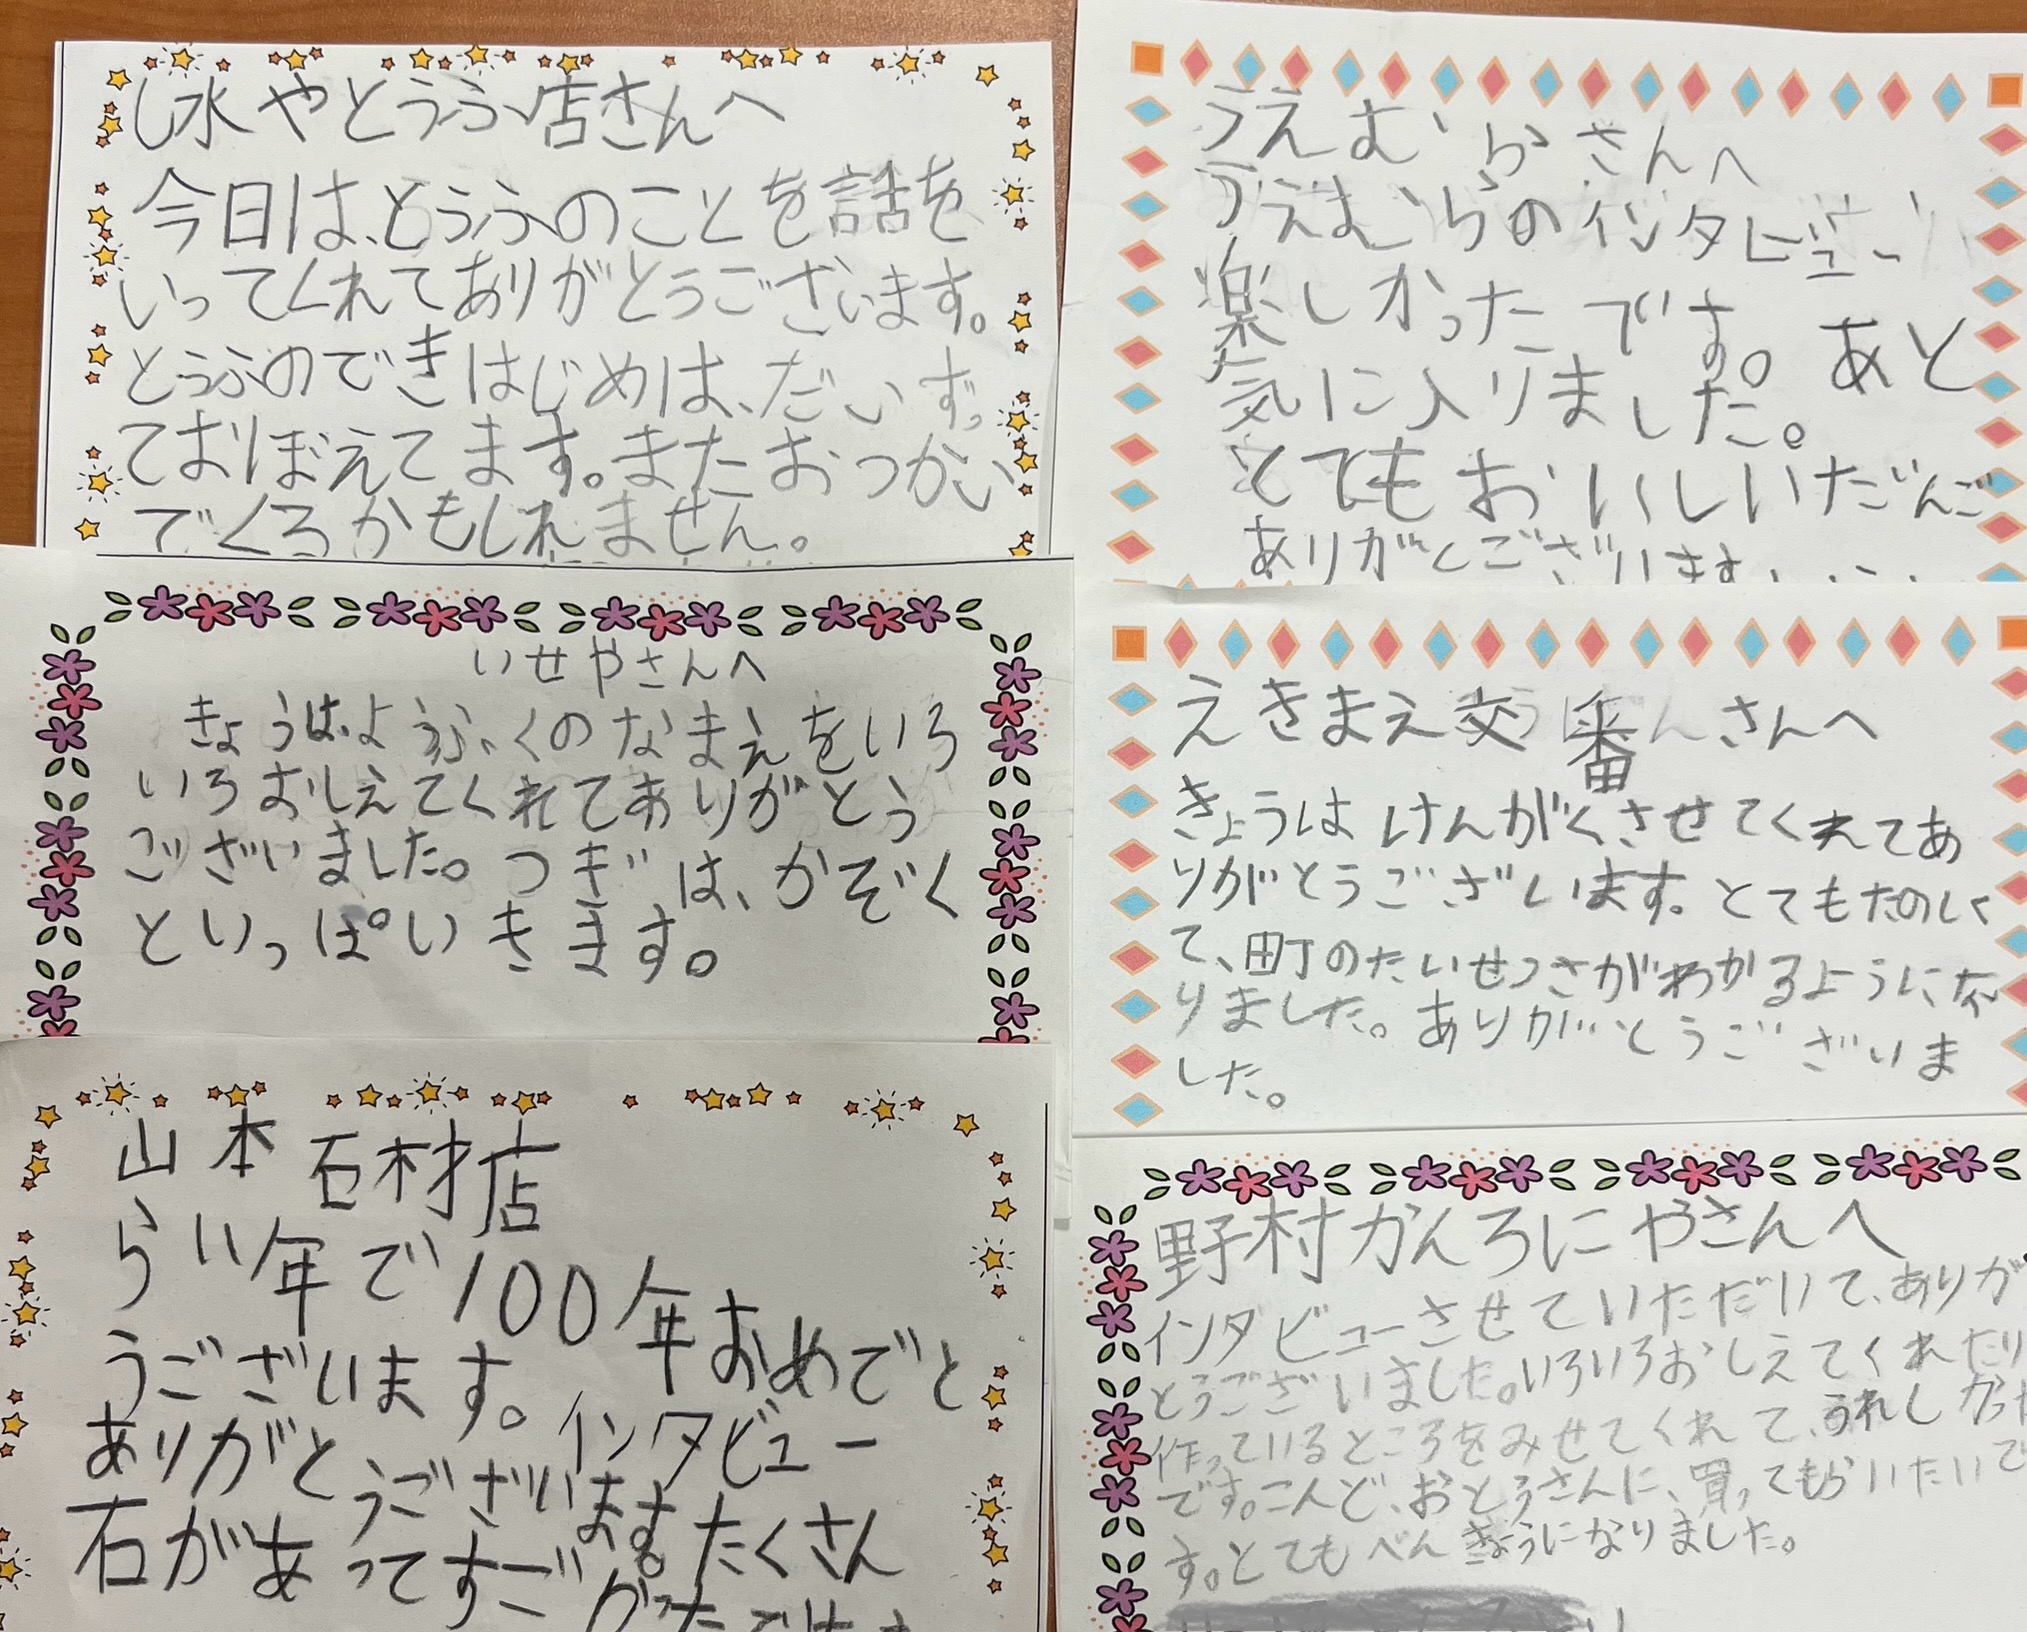 し水やとうふ店さんへ
今日は、とうふのことを話を
いってくれてありがとうございます。
とうふのできはじめは、だいず。
ておぼえてます。またおつかい
でくるかもしれません。
うえむらさんへ
うえむらのインタビュー
楽しかったです。あと
気に入りました。
とてもおいしいだんご
ありがとございます
いせやさんへ
きょうは、ようふくのなまえをいろ
いろおしえてくれてありがとう
ございました。つぎは、かぞく
といっぱいきます。
えきまえ交番さんへ
きょうはけんがくさせてくれてあ
りがとうございます。とてもたのしく
て、町のたいせつさがわかるようにな
りました。ありがとうございま
した。
山本石材店
らい年で100年おめでと
うございます。インタビュー
ありがとうございます。たくさん
石があってすご
野村かんろにやさんへ
インタビューさせていただいて、ありが
とうございました。いろいろおしえてくれたり
作っているところをみせてくれて、うれしかった
です。こんど、おとうさんに、買ってもらいたいで
す。とてもべんきょうになりました。